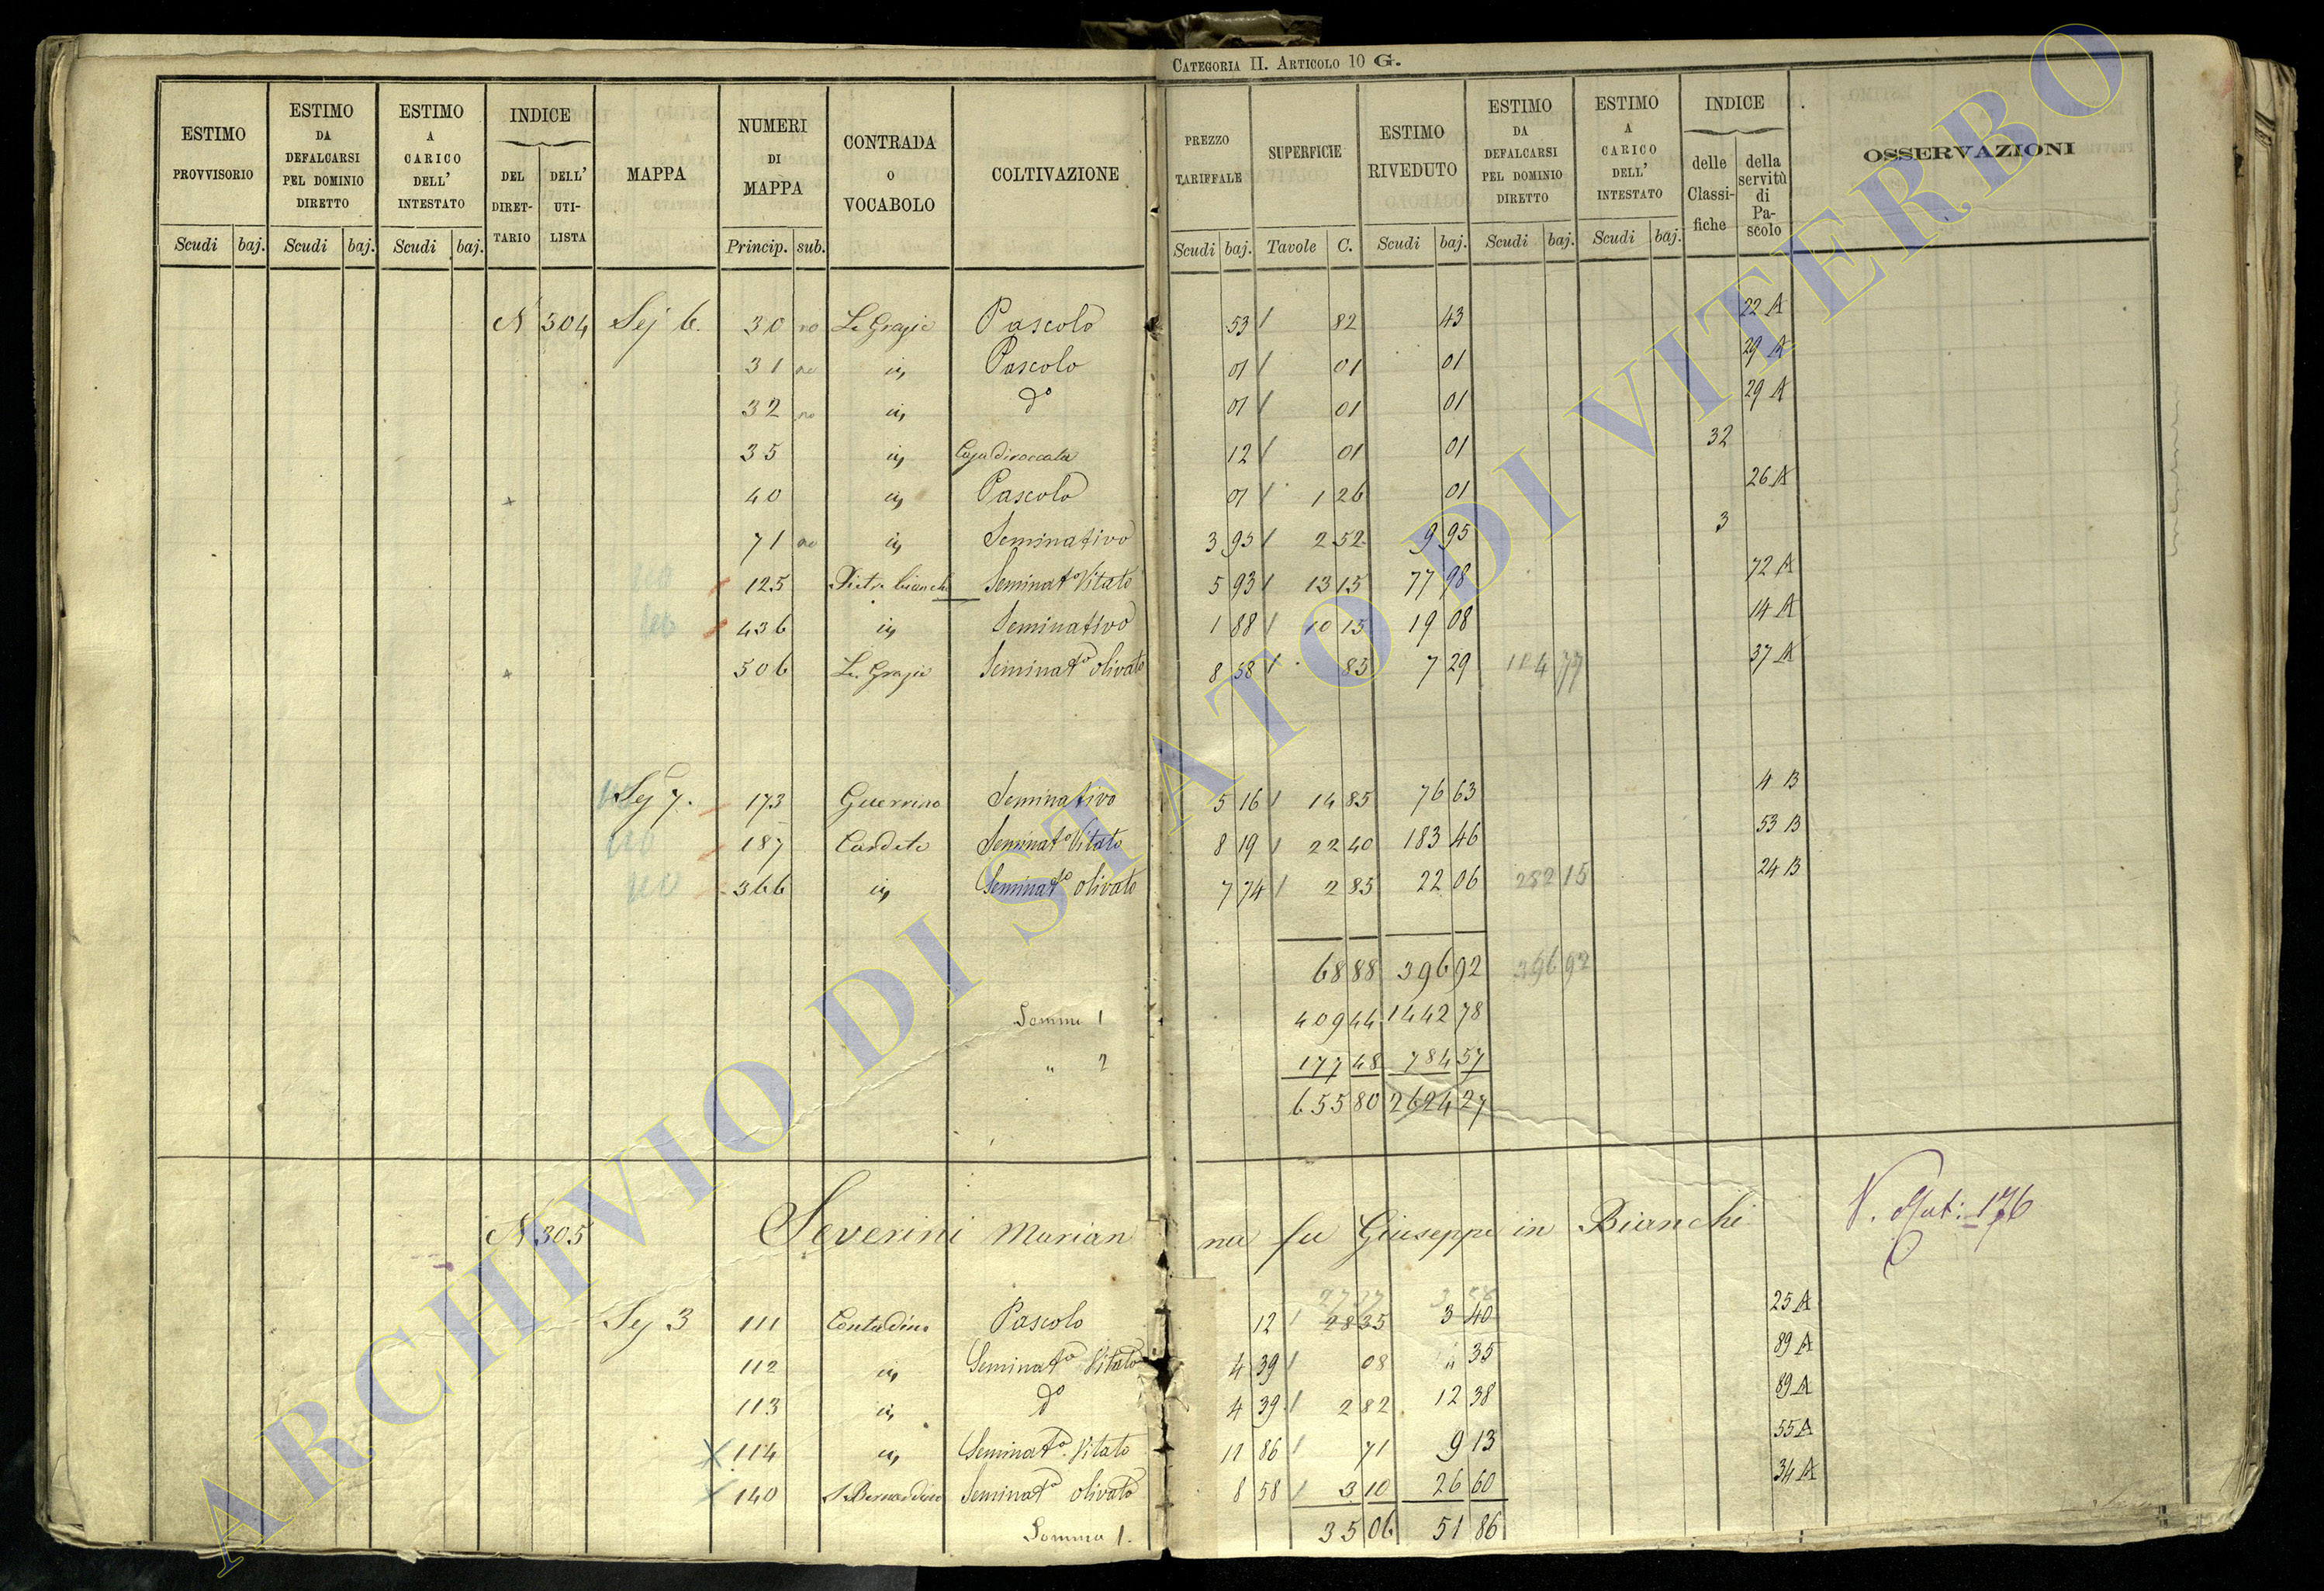 CATEGORIA II. ARTICOLO 10 G.
ESTIMO PROVVISORIO Scudi baj.
ESTIMO DA DEFALCARSI PEL DOMINIO DIRETTO Scudi baj.
ESTIMO A CARICO DELL' INTESTATO Scudi baj.
INDICE DEL DIRET-TARIO DELL' UTI-LISTA
MAPPA
NUMERI DI MAPPA Princip. sub.
CONTRADA O VOCABOLO
COLTIVAZIONE
PREZZO TARIFFALE Scudi baj.
SUPERFICIE Tavole C.
ESTIMO RIVEDUTO Scudi baj.
ESTIMO DA DEFALCARSI PEL DOMINIO DIRETTO Scudi baj.
ESTIMO A CARICO DELL' INTESTATO Scudi baj.
INDICE delle Classi-fiche della servitù di Pa-scolo
OSSERVAZIONI
N 304 Sej 6. 30 no Le Grazie Pascolo 53 82 43 22 A
31 no id Pascolo 01 01 01 29 A
32 no id do 01 01 01 29 A
35 id Casa diroccata 12 01 01 32
40 id Pascolo 01 1 26 01 26 A
71 no id Seminativo 3 95 2 52 9 95 3
125 Pietra bianch Seminato Vitato 5 93 13 15 77 98 72 A
436 id Seminativo 1 88 10 15 19 08 14 A
506 Le Grazie Seminato olivato 8 58 85 7 29 114 77 37 A
Sej 7. 173 Guerrino Seminativo 5 16 14 85 76 63 4 B
187 Cardeto Seminato Vitato 8 19 22 40 183 46 53 B
366 id Seminato olivato 7 74 2 85 22 06 282 15 24 B
68 88 396 92 396 92
Somma 1 409 44 1442 78
" 2 177 48 784 57
655 80 2624 27
N 305 Severini Marian na fu Giuseppe in Bianchi V. Mut: 176
Sej 3 111 Contadino Pascolo 12 28 35 3 40 25 A
112 id Seminato Vitato 4 39 08 " 35 89 A
113 id do 4 39 2 82 12 38 89 A
114 id Seminato Vitato 11 86 71 9 13 55 A
140 S. Bernardino Seminato olivato 8 58 3 10 26 60 34 A
Somma 1. 35 06 51 86
ARCHIVIO DI STATO DI VITERBO